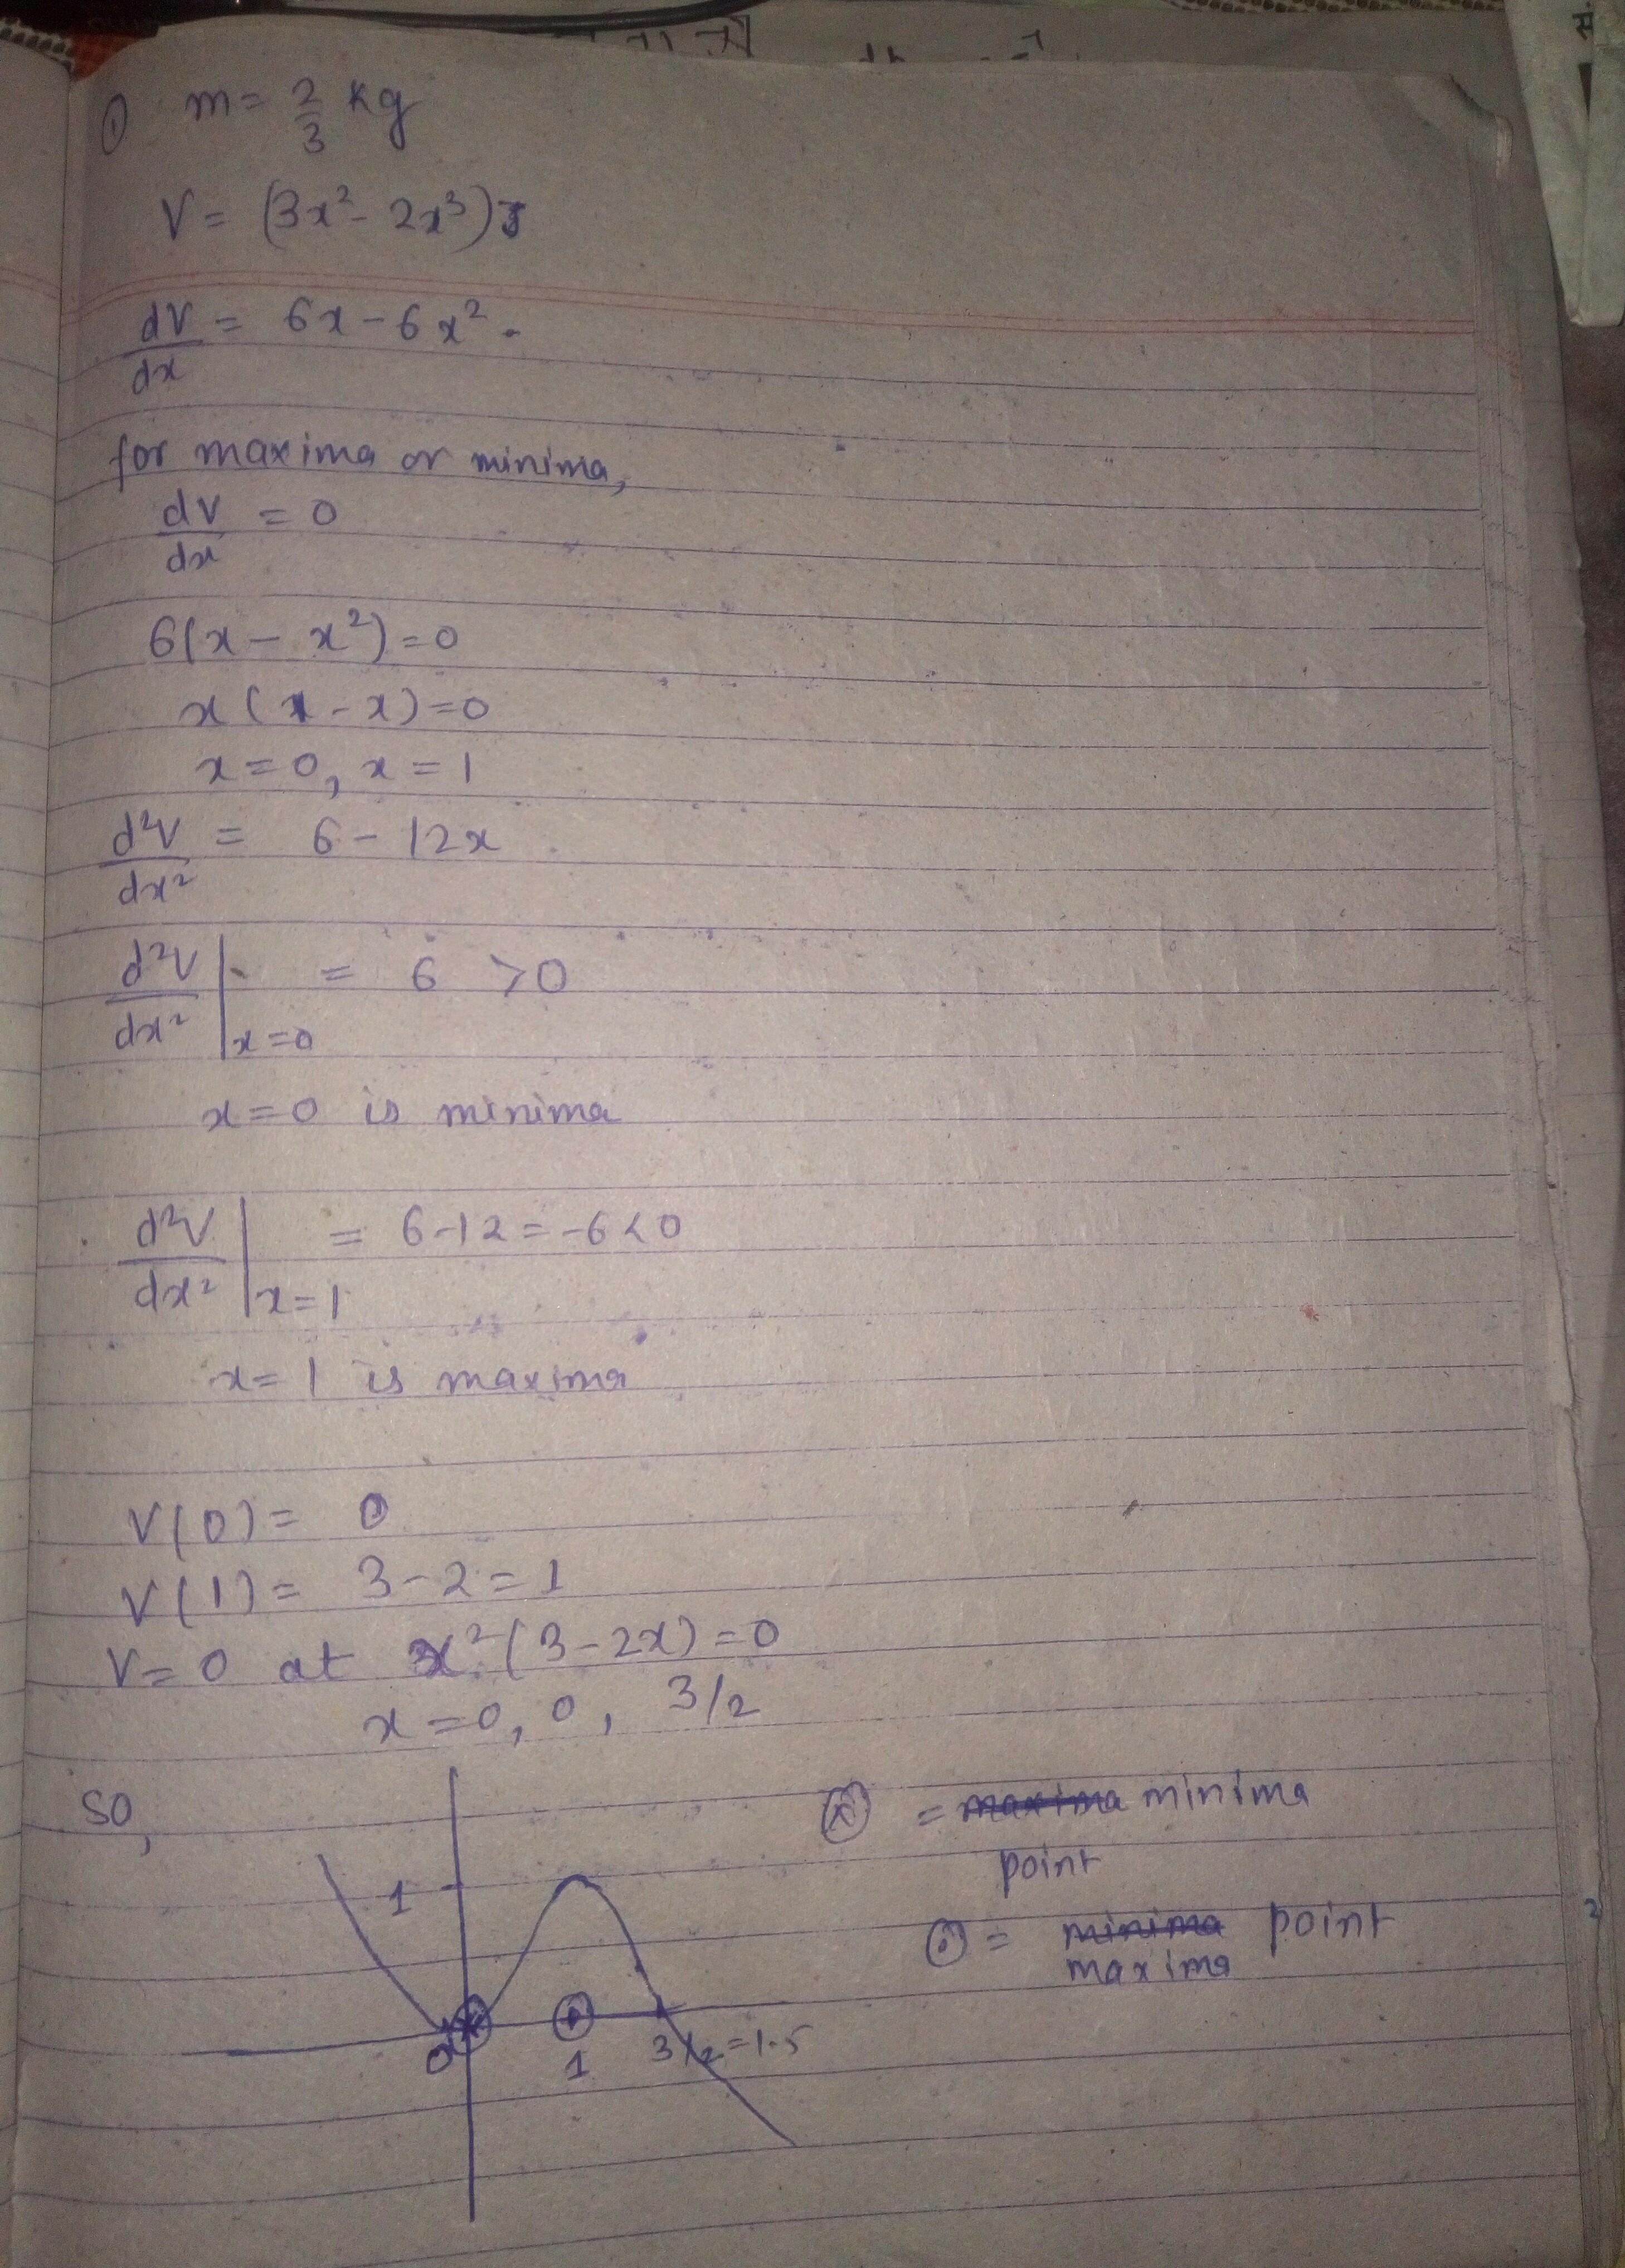 ① m = 2/3 kg
V = (3x² - 2x³)J
dV/dx = 6x - 6x².
for maxima or minima,
dV/dx = 0
6(x - x²) = 0
x(1 - x) = 0
x = 0, x = 1
d²V/dx² = 6 - 12x
d²V/dx² |x=0 = 6 > 0
x = 0 is minima
d²V/dx² |x=1 = 6-12 = -6 < 0
x = 1 is maxima
V(0) = 0
V(1) = 3-2 = 1
V = 0 at x²(3-2x) = 0
x = 0, 0, 3/2
so,
ⓧ = maxima minima
point
⊙ = minima point
maxima
1
0
1
3/2 = 1.5